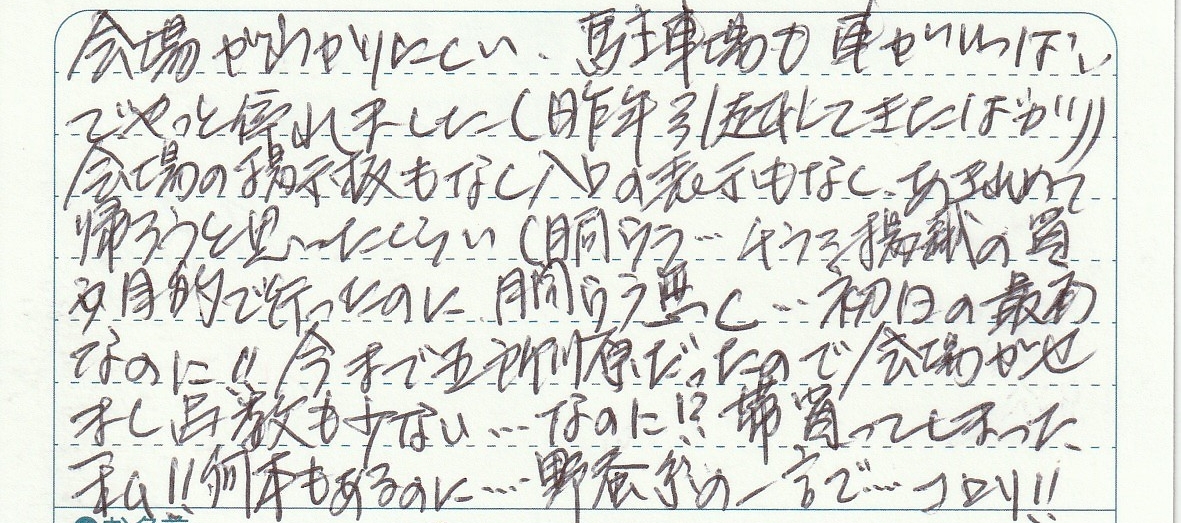 会場がわかりにくい、駐車場も車がいっぱい
でやっと停れました(昨年引越してきたばかり)
会場の掲示板もなし入口の表示もなし、あきらめて
帰ろうと思ったくらい(胴うら… チラシ掲載の買
い目的で行ったのに 胴うら無し… 初日の最初
なのに!! 今まで五所川原だったので会場がせ
まし点数も少ない… なのに!? 帯買ってしまった
私!! 何本もあるのに… 野蚕糸の一言で… コロリ!!